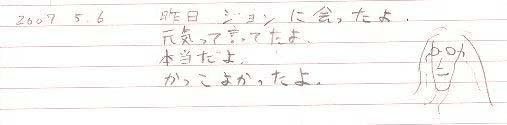 2007 5.6 昨日 ジョンに会ったよ.
元気って言ってたよ.
本当だよ.
かっこよかったよ.